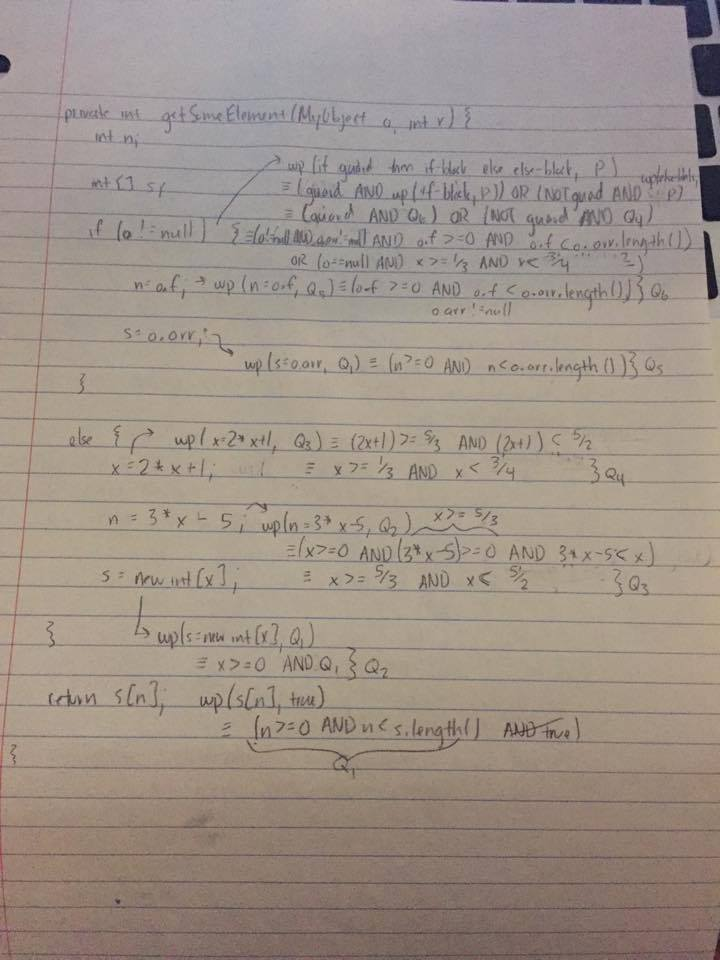 private int getSomeElement(MyObject o, int x) {
int n;
wp(if guard then if-block else else-block, P)
int[] s;
≡ (guard AND wp(if-block, P)) OR (NOT guard AND P)
≡ (guard AND Q6) OR (NOT guard AND Q4)
if (o != null) { ≡ (o != null AND o.arr != null AND o.f >= 0 AND o.f < o.arr.length()
OR (o == null AND x >= 1/3 AND x < 3/4
n = o.f; → wp(n=o.f, Q5) ≡ (o.f >= 0 AND o.f < o.arr.length()) } Q6
o.arr != null
s = o.arr;
wp(s=o.arr, Q1) ≡ (n >= 0 AND n < o.arr.length()) } Q5
}
else { wp(x=2*x+1, Q3) ≡ (2x+1) >= 5/3 AND (2x+1) < 5/2
x = 2*x+1; ≡ x >= 1/3 AND x < 3/4 } Q4
n = 3*x - 5; wp(n=3*x-5, Q2) x >= 5/3
≡ (x >= 0 AND (3*x-5) >= 0 AND 3*x-5 < x)
s = new int[x]; ≡ x >= 5/3 AND x < 5/2 } Q3
} wp(s=new int[x], Q1)
≡ x >= 0 AND Q1 } Q2
return s[n]; wp(s[n], true)
≡ (n >= 0 AND n < s.length() AND true)
} Q1